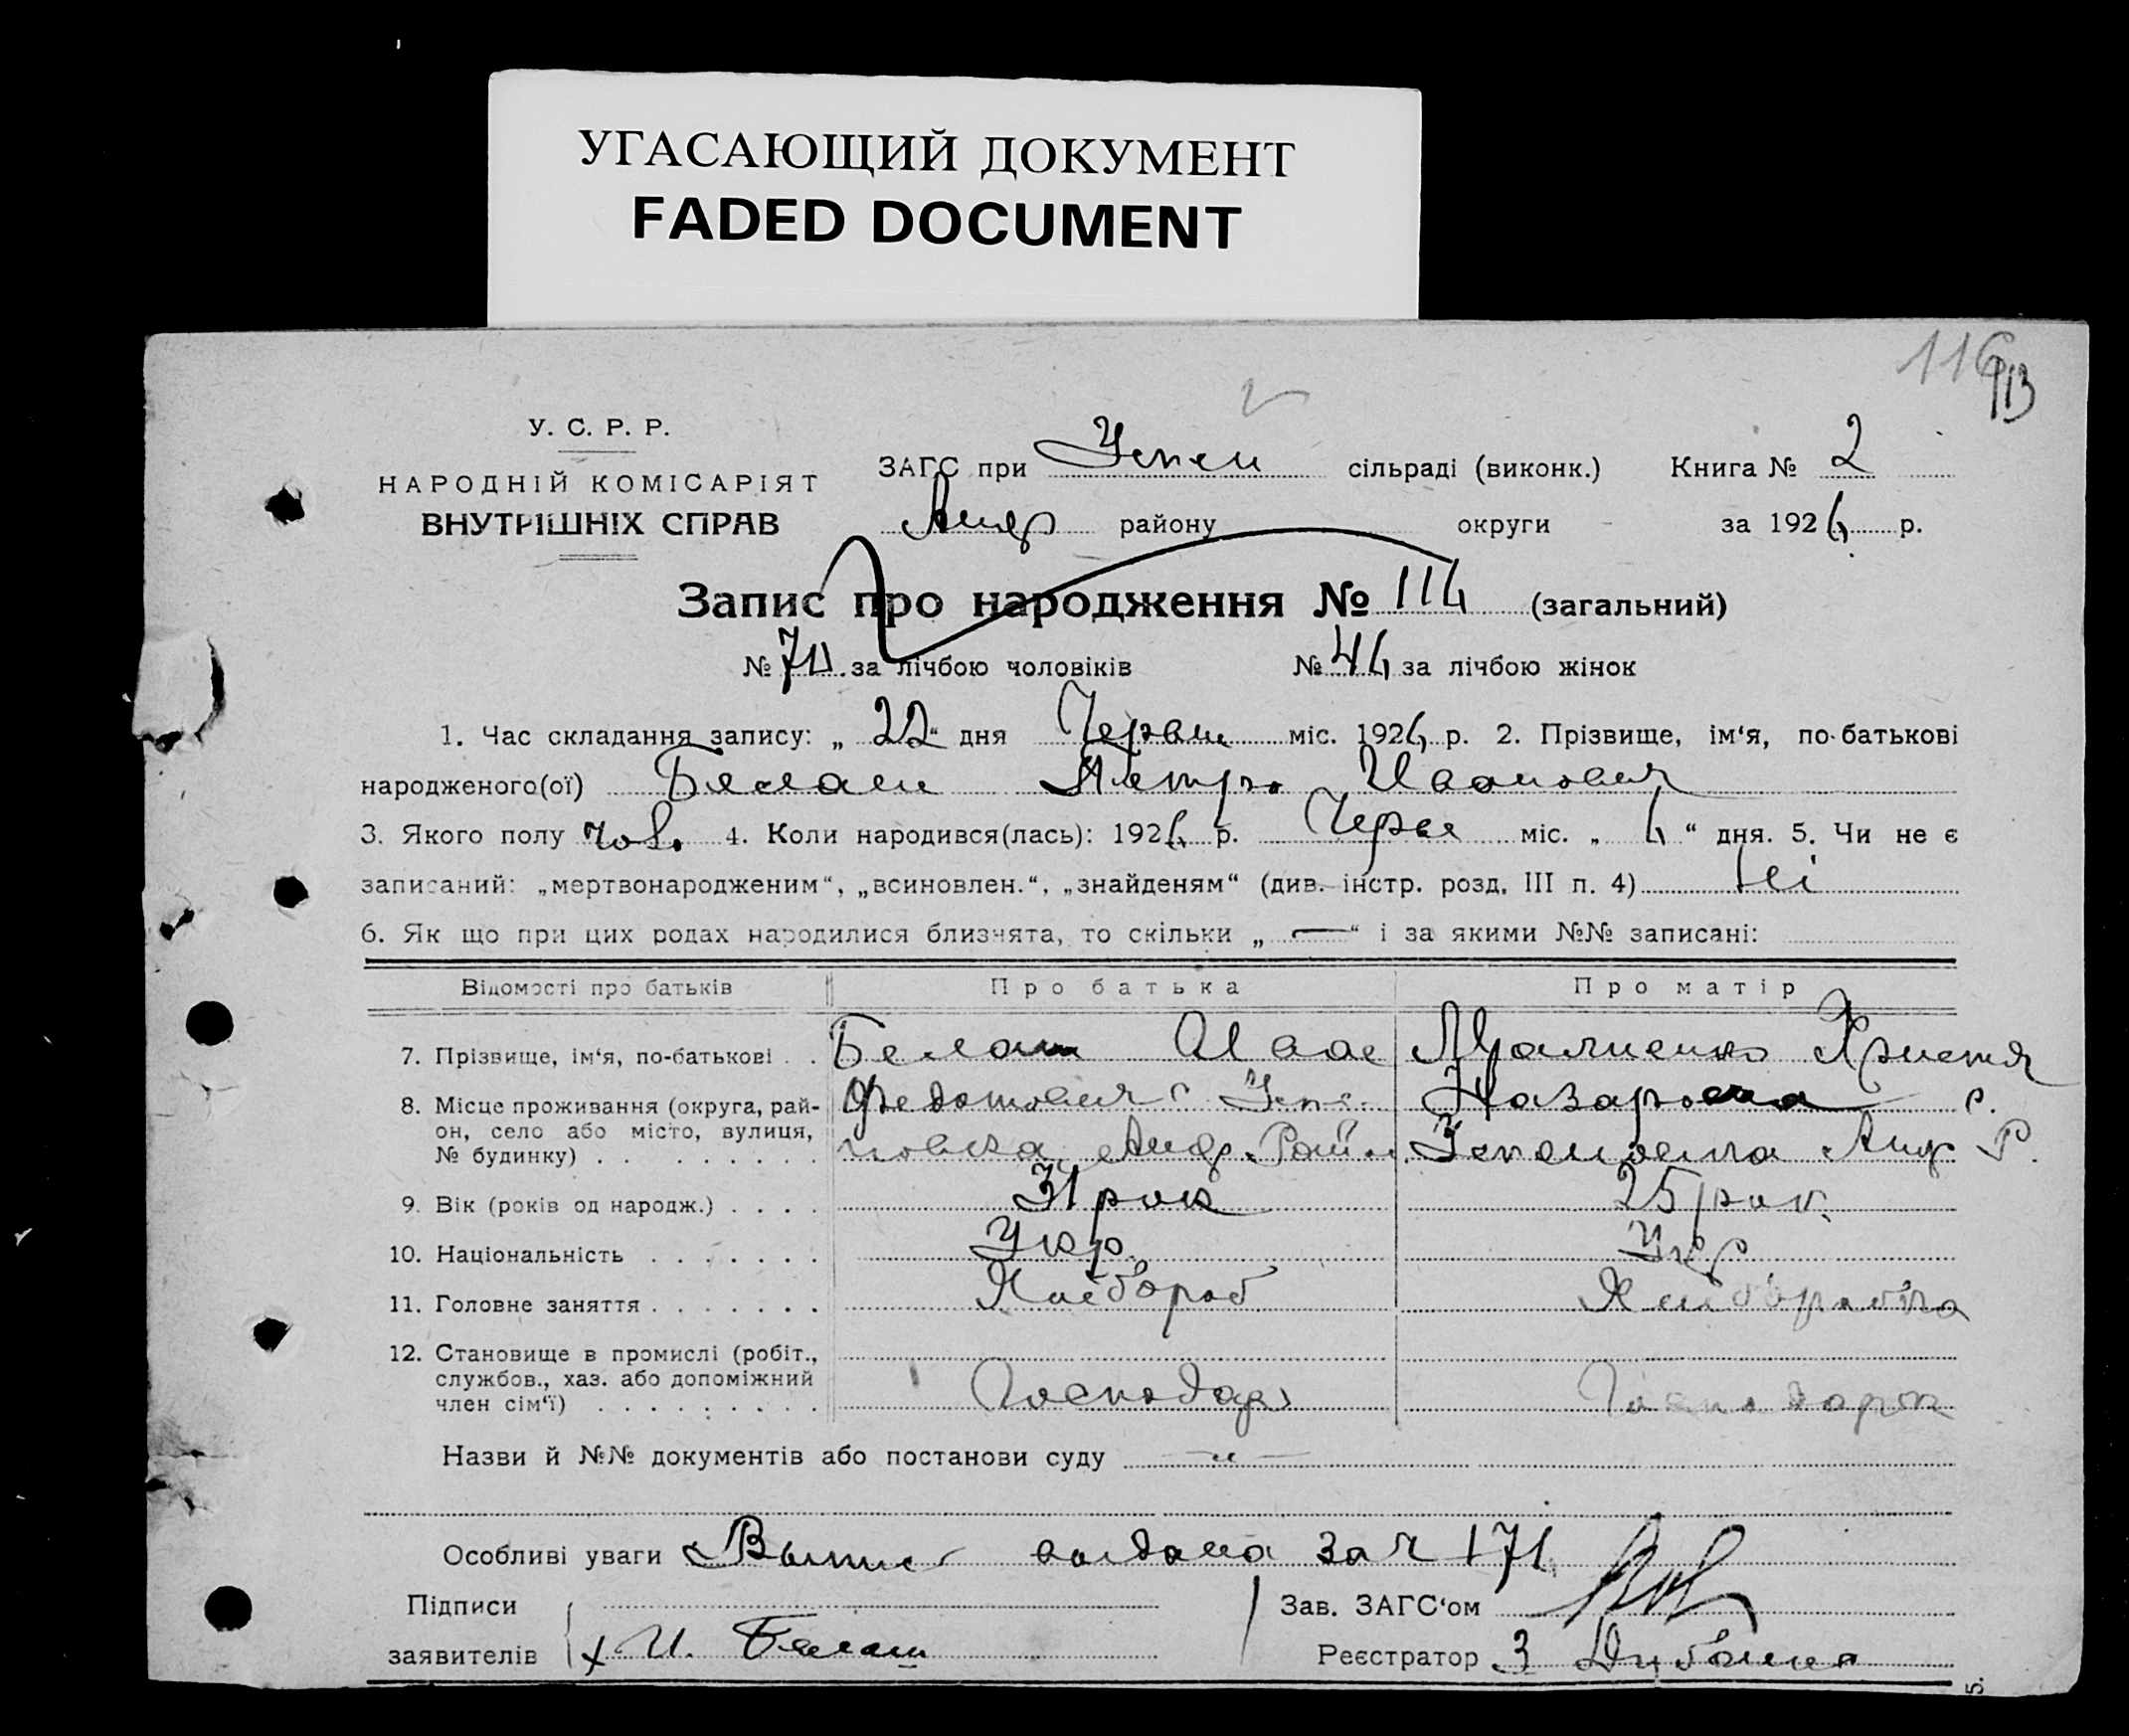 УГАСАЮЩИЙ ДОКУМЕНТ
FADED DOCUMENT
116 113
У. С. Р. Р.
НАРОДНІЙ КОМІСАРІЯТ
ВНУТРІШНІХ СПРАВ
ЗАГС при Успен сільраді (виконк.) Книга № 2
Андр району округи за 1926 р.
Запис про народження № 116 (загальний)
№ 70 за лічбою чоловіків № 46 за лічбою жінок
1. Час складання запису: „ 22 “ дня Червня міс. 1926 р. 2. Прізвище, ім‘я, по-батькові
народженого(ої) Белаш Петро Иванович
3. Якого полу чол. 4. Коли народився(лась): 1926 р. Червня міс. „ 6 “ дня. 5. Чи не є
записаний: „мертвонародженим“, „всиновлен.“, „знайденям“ (див. інстр. розд. III п. 4) Ні
6. Як що при цих родах народилися близнята, то скільки „ — “ і за якими №№ записані:
Відомості про батьків Про батька Про матір
7. Прізвище, ім‘я, по-батькові . . Белаш Иван Христя
8. Місце проживання (округа, рай-он, село або місто, вулиця, № будинку) . . . Федотович с Успеновка Андр. Район. Назаровна с. Успеновка Андр Р.
9. Вік (років од народж.) . . . . 31 рок 25 рок.
10. Національність . . . . . . . Укр. Укр
11. Головне заняття . . . . . . . Хлебороб Хлеборобка
12. Становище в промислі (робіт., службов., хаз. або допоміжний член сім‘ї) . . . Господар Господарка
Назви й №№ документів або постанови суду — " —
Особливі уваги Выпис выдана за ч 171
Підписи Зав. ЗАГС‘ом
заявителів х И. Белаш Реєстратор З
5.